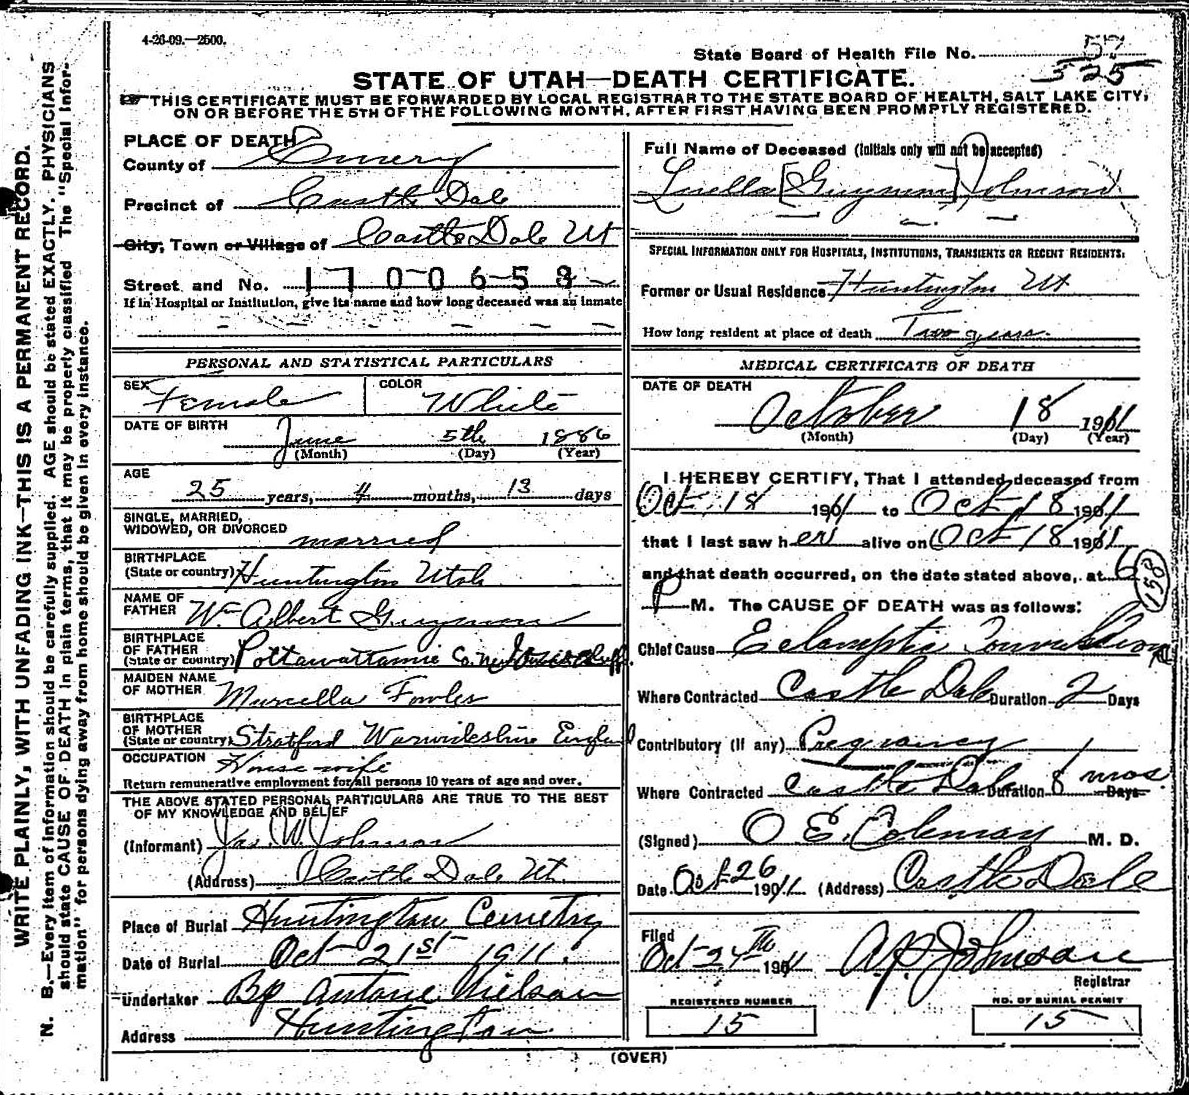 4-26-09.—2500.
State Board of Health File No. 57
525
STATE OF UTAH—DEATH CERTIFICATE.
THIS CERTIFICATE MUST BE FORWARDED BY LOCAL REGISTRAR TO THE STATE BOARD OF HEALTH, SALT LAKE CITY,
ON OR BEFORE THE 5TH OF THE FOLLOWING MONTH, AFTER FIRST HAVING BEEN PROMPTLY REGISTERED.
WRITE PLAINLY, WITH UNFADING INK—THIS IS A PERMANENT RECORD.
N. B.—Every item of information should be carefully supplied. AGE should be stated EXACTLY. PHYSICIANS
should state CAUSE OF DEATH in plain terms, that it may be properly classified. The "Special Infor-
mation" for persons dying away from home should be given in every instance.
PLACE OF DEATH
County of Emery
Precinct of Castle Dale
City, Town or Village of Castle Dale Ut
Street and No. 1700658
If in Hospital or Institution, give its name and how long deceased was an inmate
PERSONAL AND STATISTICAL PARTICULARS
SEX Female COLOR White
DATE OF BIRTH June 5th 1886
(Month) (Day) (Year)
AGE
25 years, 4 months, 13 days
SINGLE, MARRIED,
WIDOWED, OR DIVORCED married
BIRTHPLACE
(State or country) Huntington Utah
NAME OF
FATHER Wm Albert Guymon
BIRTHPLACE
OF FATHER
(State or country) Pottawattamie Co.
MAIDEN NAME
OF MOTHER Murcella Fowler
BIRTHPLACE
OF MOTHER
(State or country) Stratford Warwickshire England
OCCUPATION House wife
Return remunerative employment for all persons 10 years of age and over.
THE ABOVE STATED PERSONAL PARTICULARS ARE TRUE TO THE BEST
OF MY KNOWLEDGE AND BELIEF
(Informant) Jas. W. Johnson
(Address) Castle Dale Ut
Place of Burial Huntington Cemetry
Date of Burial Oct 21st 1911.
Undertaker Bp Antone Nielson
Address Huntington
Full Name of Deceased (Initials only will not be accepted)
Luella [Guymon] Johnson
SPECIAL INFORMATION ONLY FOR HOSPITALS, INSTITUTIONS, TRANSIENTS OR RECENT RESIDENTS:
Former or Usual Residence Huntington Ut
How long resident at place of death Two years.
MEDICAL CERTIFICATE OF DEATH
DATE OF DEATH
October 18 1911
(Month) (Day) (Year)
I HEREBY CERTIFY, That I attended deceased from
Oct. 18 1911 to Oct 18 1911
that I last saw her alive on Oct 18 1911
and that death occurred, on the date stated above, at 6
158
P M. The CAUSE OF DEATH was as follows:
Chief Cause Eclamptic Convulsions
Where Contracted Castle Dale Duration 2 Days
Contributory (If any) Pregnancy
Where Contracted Castle Dale Duration 8 mos Days
(Signed) O E. Coleman M. D.
Date Oct 26 1911 (Address) Castle Dale
Filed
Oct 24th 1911 A. P. Johnson
Registrar
REGISTERED NUMBER NO. OF BURIAL PERMIT
15 15
(OVER)